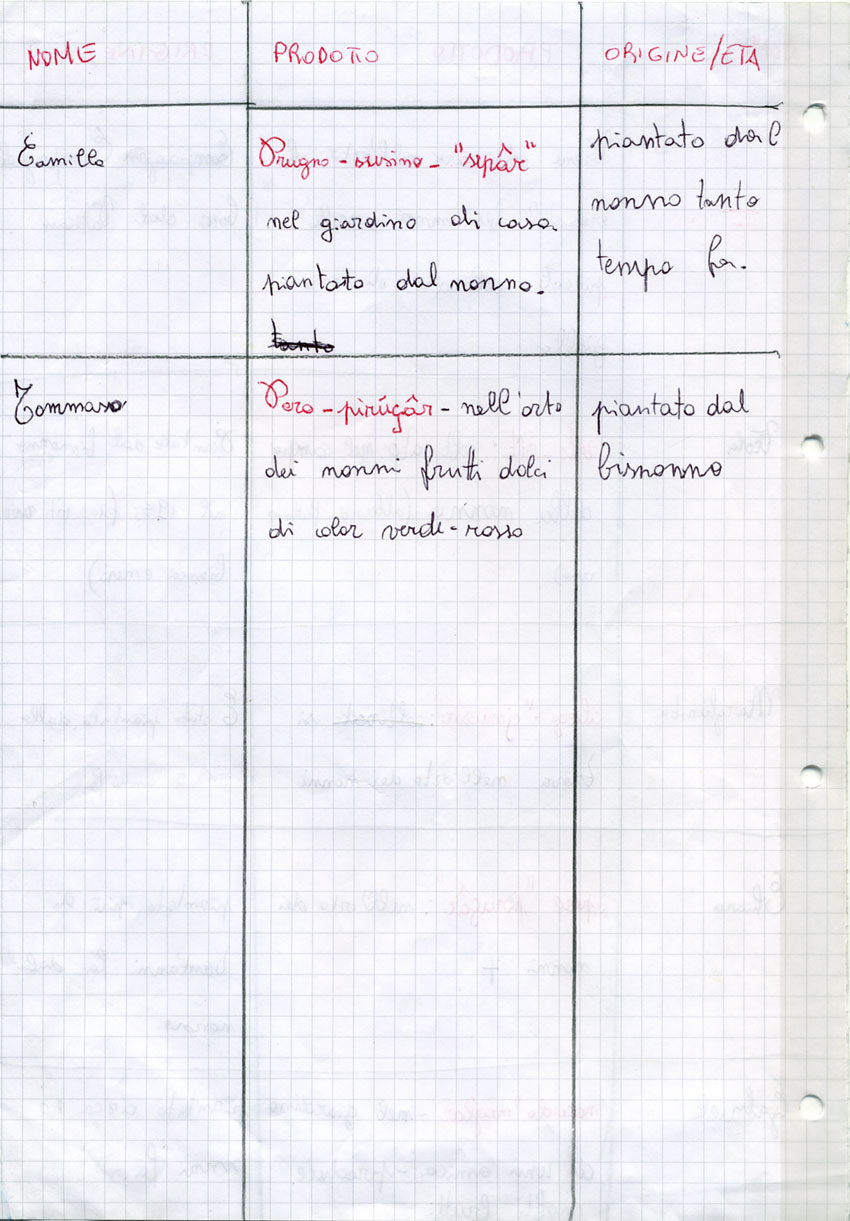 NOME PRODOTTO ORIGINE/ETA
Camilla
Prugno - susino - "sepâr"
nel giardino di casa.
piantato dal nonno.
tanto
piantato dal
nonno tanto
tempo fa.
Tommaso
Pero - pirúgâr - nell'orto
dei nonni frutti dolci
di color verde-rosso
piantato dal
bisnonno